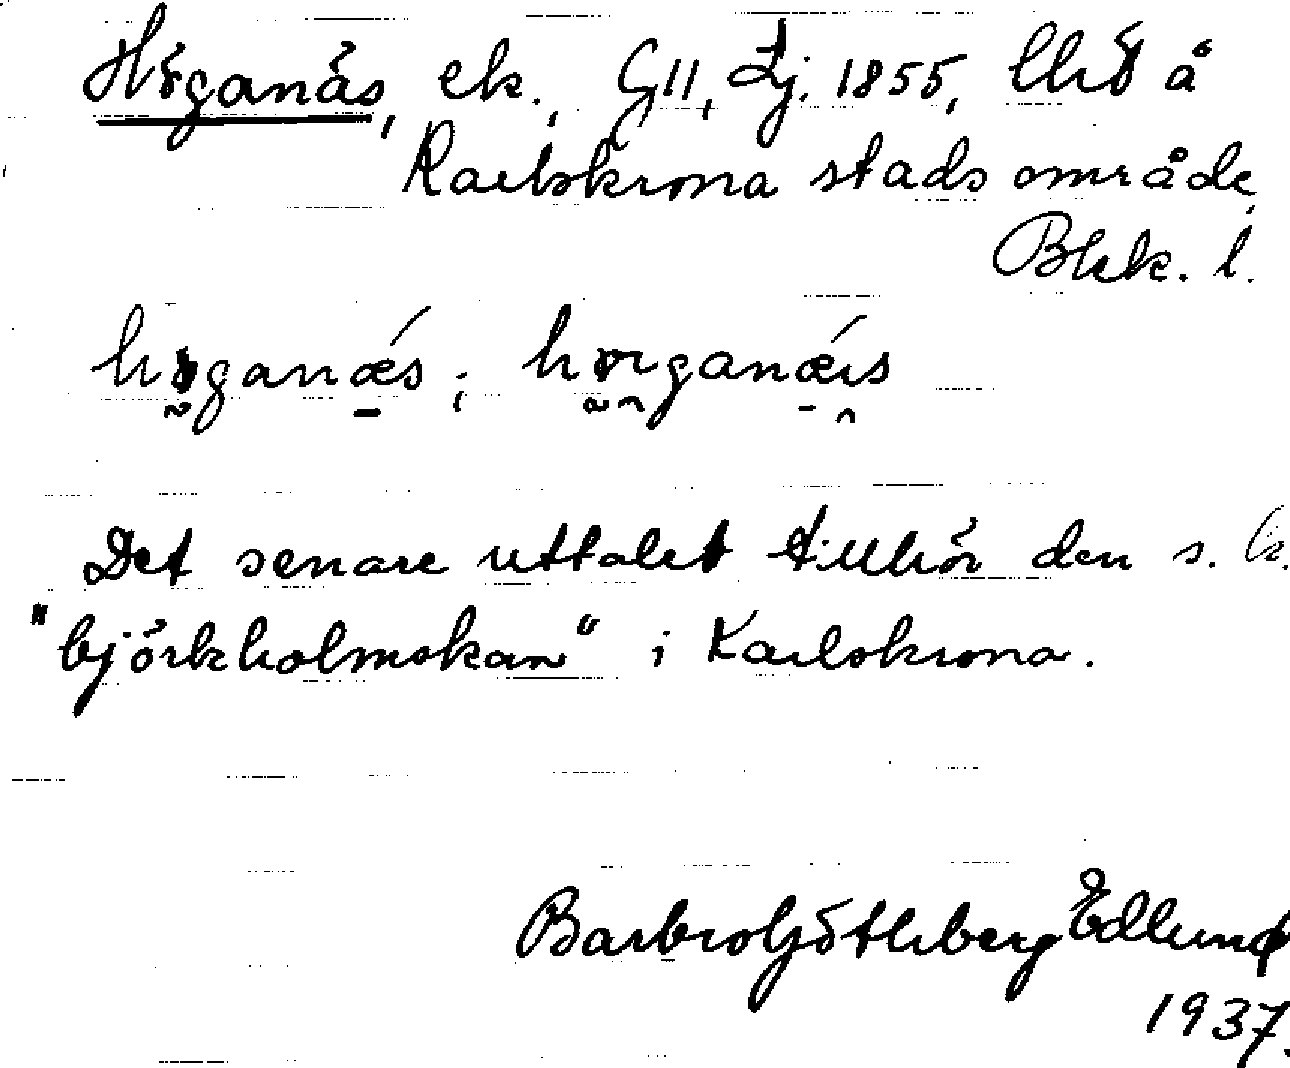 Höganäs, ek., G11, Lj. 1855, Utö å
Karlskrona stads område,
Blek. l.
høganǽs; hørganǽis
Det senare uttalet tillhör den s. k.
"björkholmskan" i Karlskrona.
Barbro Götheberg Edlund
1937.